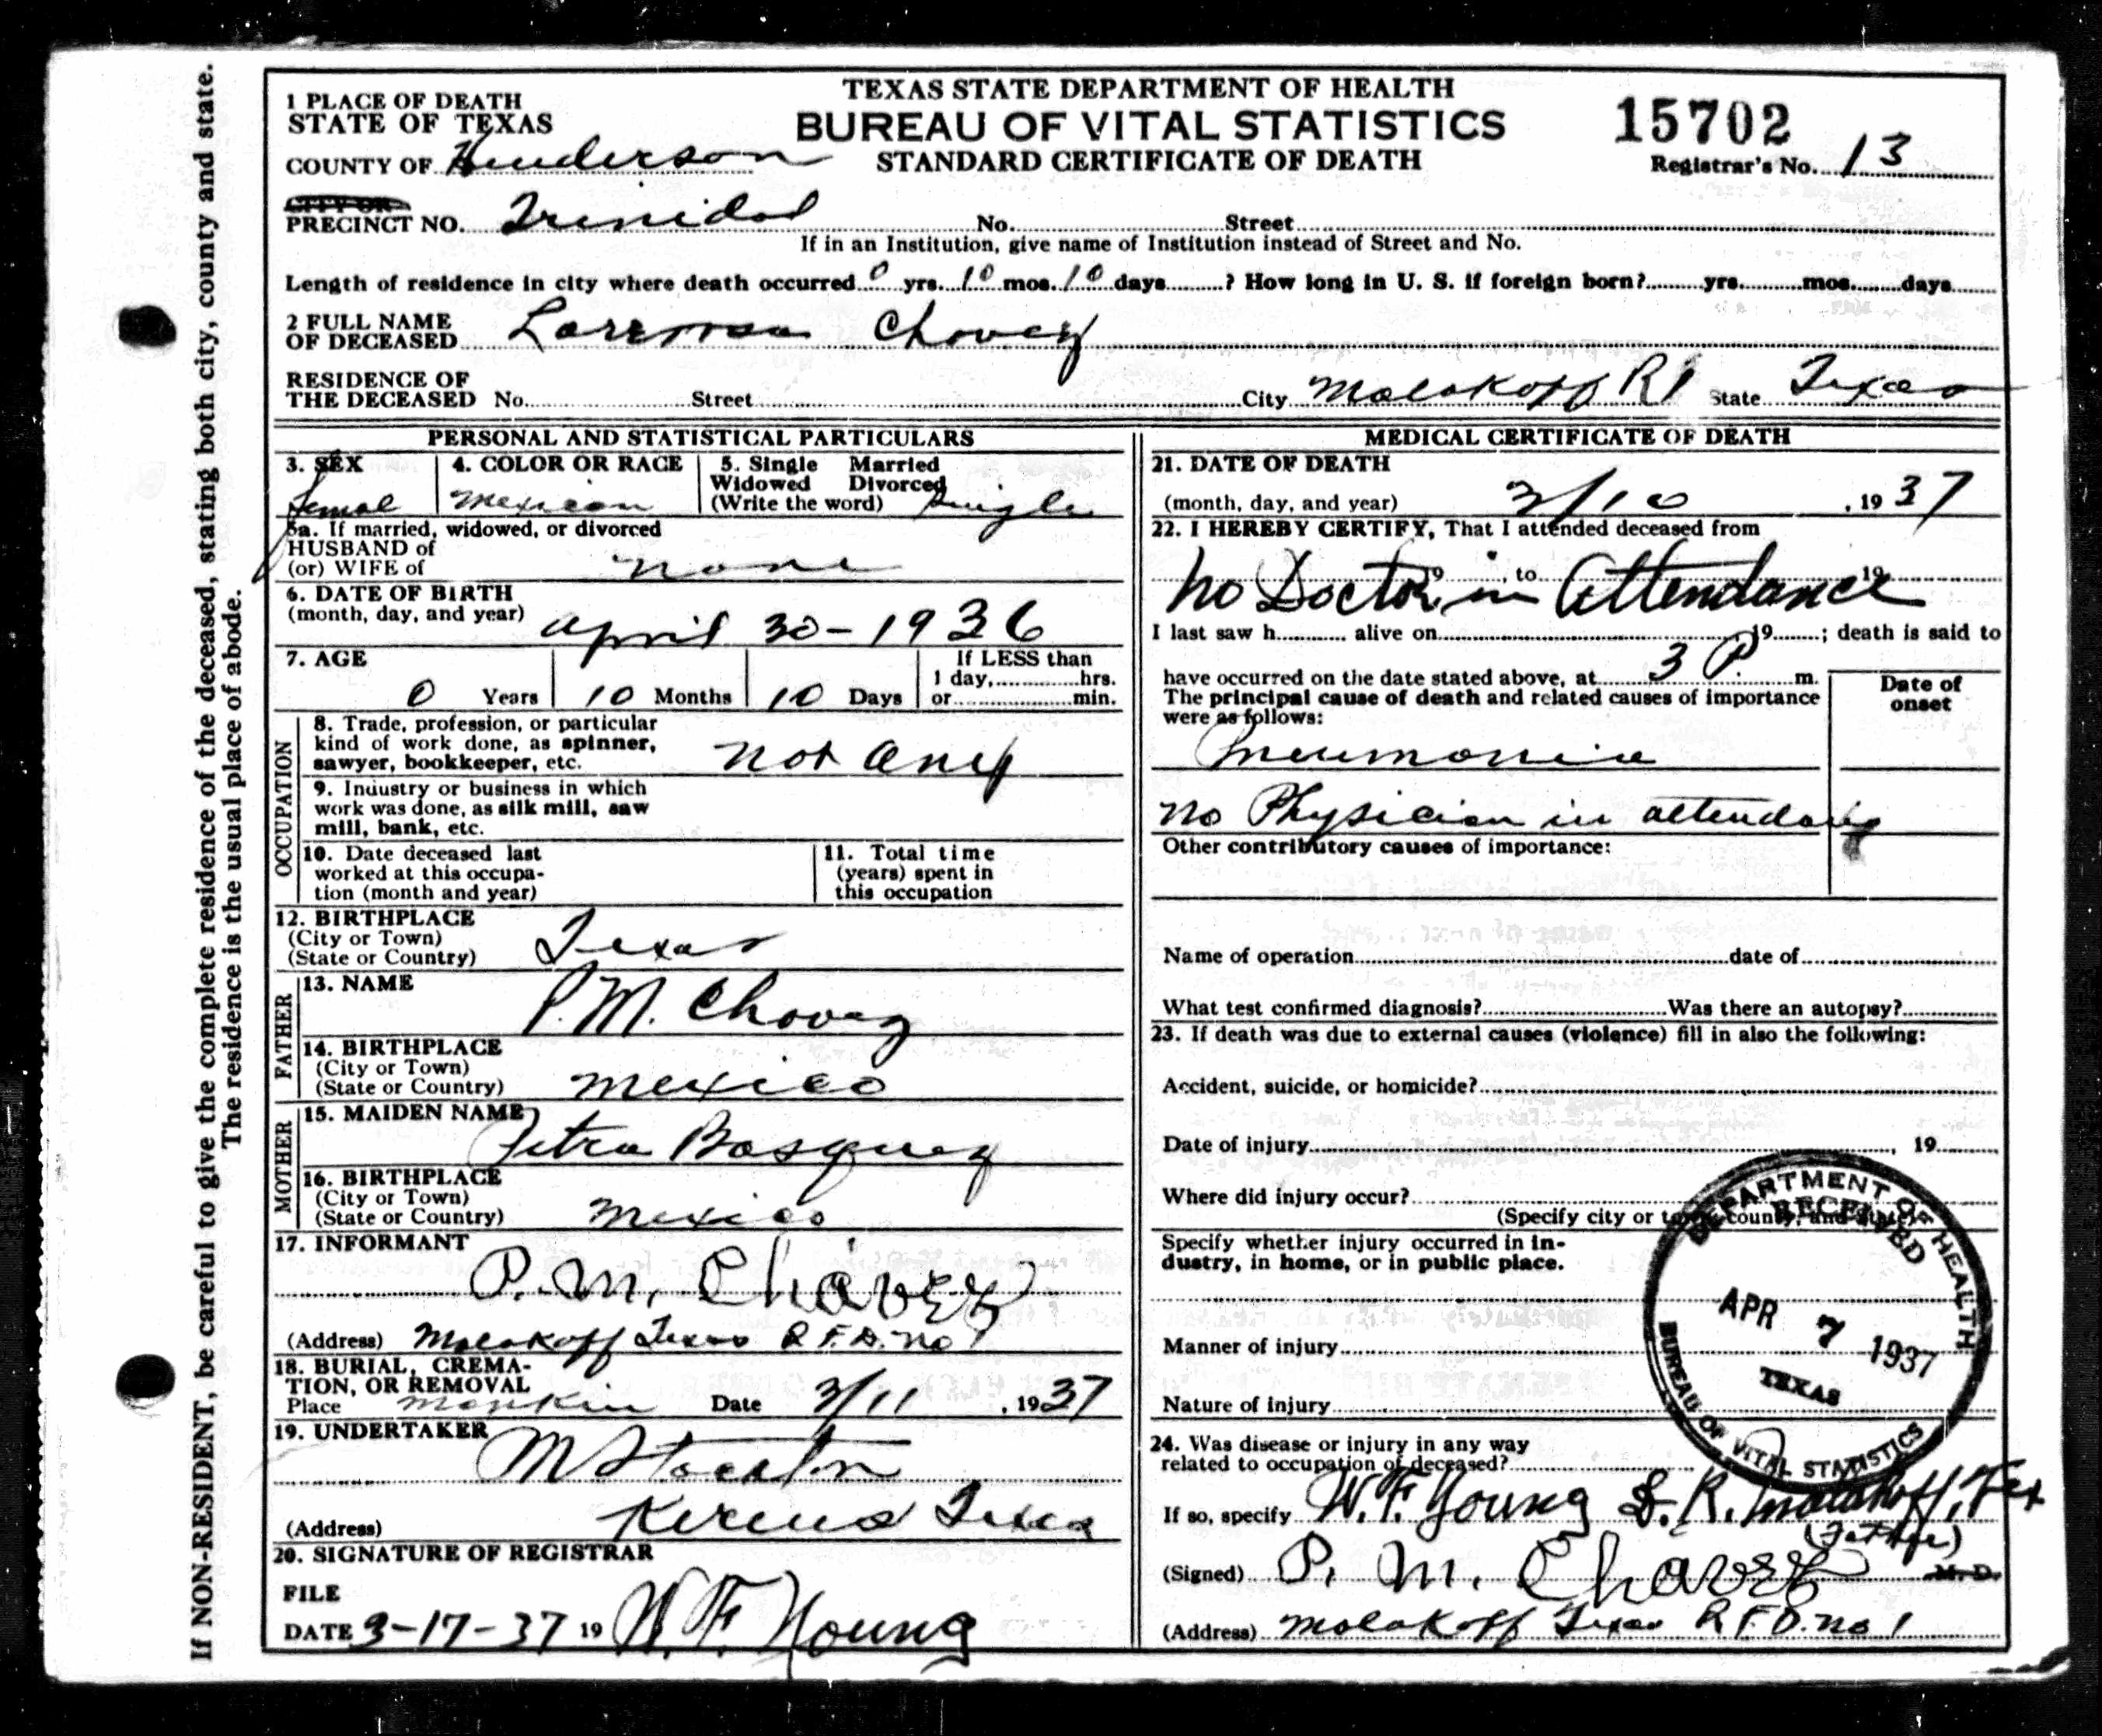 If NON-RESIDENT, be careful to give the complete residence of the deceased, stating both city, county and state.
The residence is the usual place of abode.
TEXAS STATE DEPARTMENT OF HEALTH
BUREAU OF VITAL STATISTICS
STANDARD CERTIFICATE OF DEATH
15702
Registrar's No. 13
1 PLACE OF DEATH
STATE OF TEXAS
COUNTY OF Henderson
CITY OR
PRECINCT NO. Trinidad No. Street
If in an Institution, give name of Institution instead of Street and No.
Length of residence in city where death occurred 0 yrs. 10 mos. 10 days ? How long in U. S. if foreign born? yrs. mos. days
2 FULL NAME
OF DECEASED Chovez
RESIDENCE OF
THE DECEASED No. Street City Malakoff R1 State Texas
PERSONAL AND STATISTICAL PARTICULARS
3. SEX
Femal
4. COLOR OR RACE
Mexican
5. Single Married
Widowed Divorced
(Write the word) Single
5a. If married, widowed, or divorced
HUSBAND of
(or) WIFE of none
6. DATE OF BIRTH
(month, day, and year) April 30-1936
7. AGE
0 Years 10 Months 10 Days
If LESS than
1 day, hrs.
or min.
OCCUPATION
8. Trade, profession, or particular
kind of work done, as spinner,
sawyer, bookkeeper, etc. not any
9. Industry or business in which
work was done, as silk mill, saw
mill, bank, etc.
10. Date deceased last
worked at this occupa-
tion (month and year)
11. Total time
(years) spent in
this occupation
12. BIRTHPLACE
(City or Town)
(State or Country) Texas
FATHER
13. NAME P.M. Chovez
14. BIRTHPLACE
(City or Town)
(State or Country) Mexico
MOTHER
15. MAIDEN NAME Petra Basquez
16. BIRTHPLACE
(City or Town)
(State or Country) Mexico
17. INFORMANT
P. M. Chavez
(Address) Malakoff Texas R.F.D. no 1
18. BURIAL, CREMA-
TION, OR REMOVAL
Place Mankin Date 3/11, 1937
19. UNDERTAKER
M Stockton
(Address) Kerens Texas
20. SIGNATURE OF REGISTRAR
FILE
DATE 3-17-37 19 W. F. Young
MEDICAL CERTIFICATE OF DEATH
21. DATE OF DEATH
(month, day, and year) 3/10, 1937
22. I HEREBY CERTIFY, That I attended deceased from
, 19 , to , 19
No Doctor in Attendance
I last saw h alive on , 19 ; death is said to
have occurred on the date stated above, at 3 P. m.
The principal cause of death and related causes of importance
were as follows:
Date of
onset
Pneumonia
no Physician in attendance
Other contributory causes of importance:
Name of operation date of
What test confirmed diagnosis? Was there an autopsy?
23. If death was due to external causes (violence) fill in also the following:
Accident, suicide, or homicide?
Date of injury , 19
Where did injury occur?
(Specify city or town, county, and state)
Specify whether injury occurred in in-
dustry, in home, or in public place.
Manner of injury
Nature of injury
DEPARTMENT OF HEALTH
RECEIVED
APR 7 1937
TEXAS
BUREAU OF VITAL STATISTICS
24. Was disease or injury in any way
related to occupation of deceased?
If so, specify W.F. Young S.R. Malakoff, Tex
(Father)
(Signed) P. M. Chavez M. D.
(Address) Malakoff Texas R.F.D. no 1